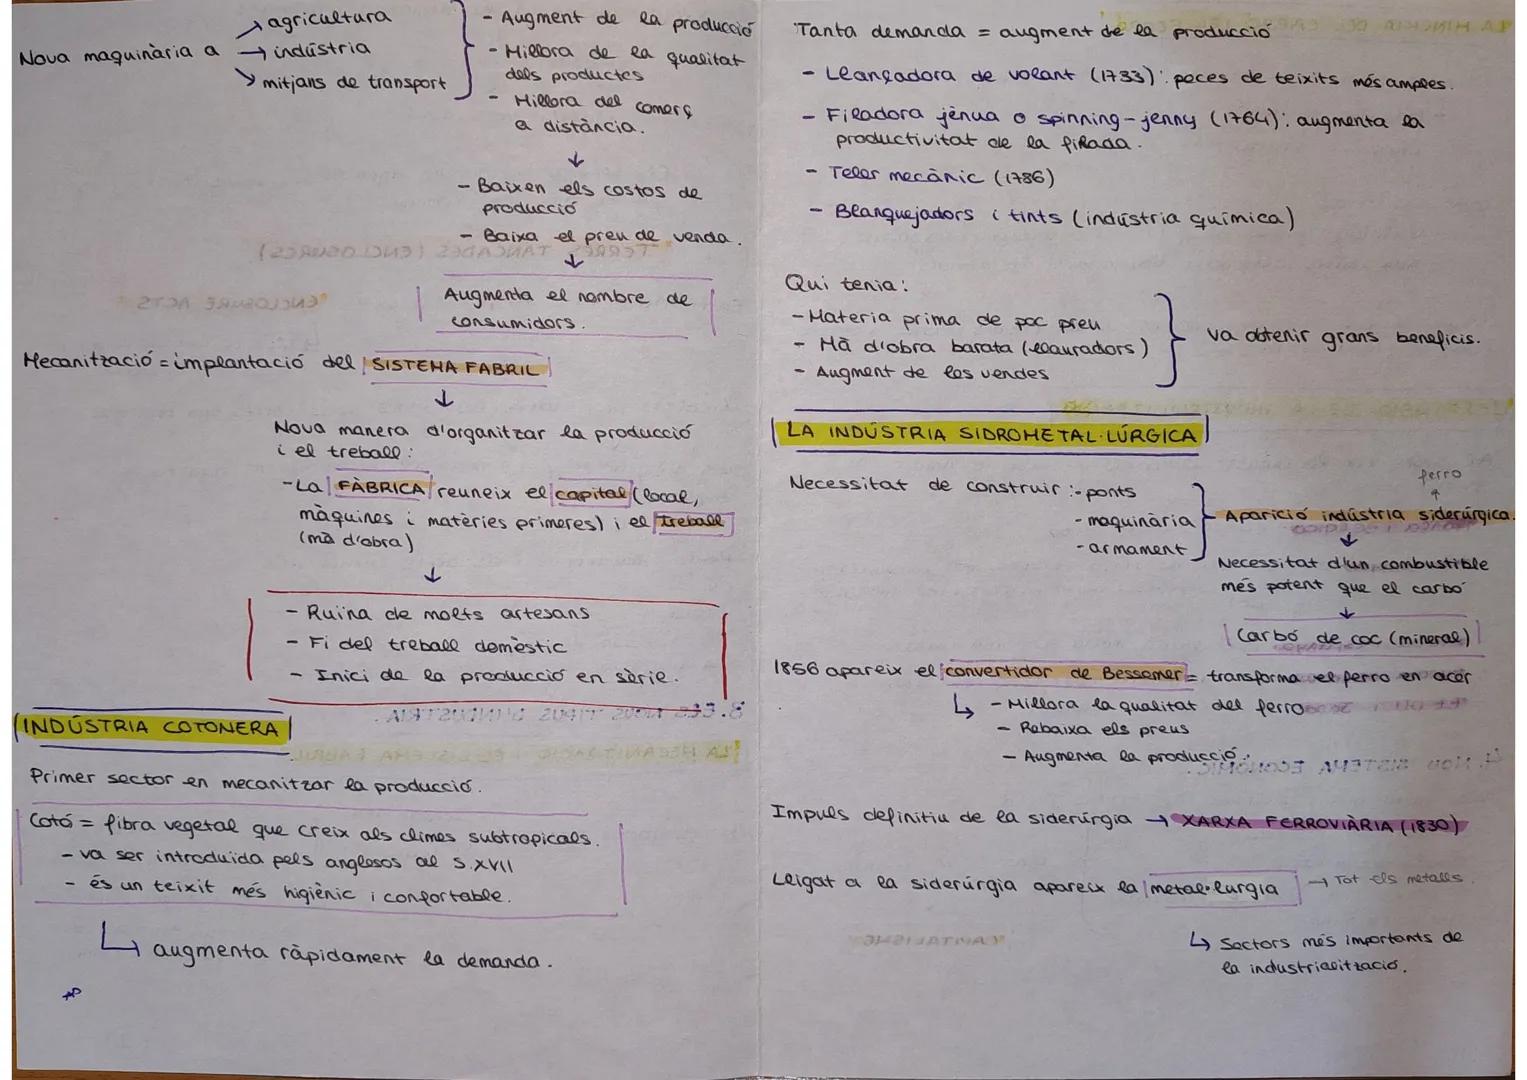 Nova maquinària a
agricultura
indústria
mitjans de transport
- Augment de la producció
- Millora de la qualitat
dels productes
- Millora del comerç
a distància.
↓
- Baixen els costos de
producció
- Baixa el preu de venda.
↓
Augmenta el nombre de
consumidors.
Mecanització = implantació del SISTEMA FABRIL
↓
Nova manera d'organitzar la producció
i el treball:
- La FÀBRICA reuneix el capital (local,
màquines i matèries primeres) i el treball
(mà d'obra)
↓
- Ruïna de molts artesans
- Fi del treball domèstic
- Inici de la producció en sèrie.
INDÚSTRIA COTONERA
Primer sector en mecanitzar la producció.
Cotó = fibra vegetal que creix als climes subtropicals.
- va ser introduïda pels anglesos al s.XVII
- és un teixit més higiènic i confortable.
↳ augmenta ràpidament la demanda.
Tanta demanda = augment de la producció
- Llançadora de volant (1733): peces de teixits més amples.
- Filadora jènua o spinning-jenny (1764): augmenta la
productivitat de la filada.
- Teler mecànic (1786)
- Blanquejadors i tints (indústria química)
Qui tenia:
- Materia prima de poc preu
- Mà d'obra barata (llauradors)
- Augment de les vendes
va obtenir grans beneficis.
LA INDÚSTRIA SIDROMETAL·LÚRGICA
Necessitat de construir: - ponts
- maquinària
- armament
ferro
↑
Aparició indústria siderúrgica.
↓
Necessitat d'un combustible
més potent que el carbó
↓
Carbó de coc (mineral)
1856 apareix el convertidor de Bessemer = transforma el ferro en acer
↳ - Millora la qualitat del ferro
- Rebaixa els preus
- Augmenta la producció.
Impuls definitiu de la siderúrgia → XARXA FERROVIÀRIA (1830)
Lligat a la siderúrgia apareix la metal·lurgia → Tot els metalls.
↳ Sectors més importants de
la industrialització.